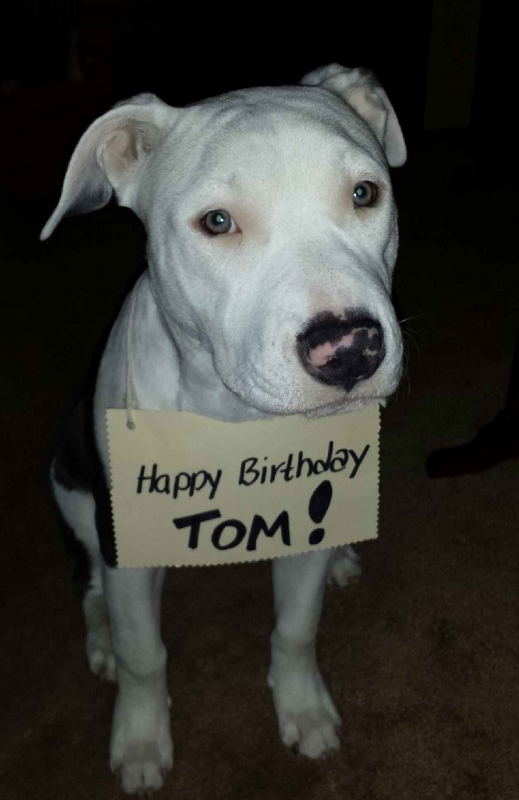 Happy Birthday
TOM!